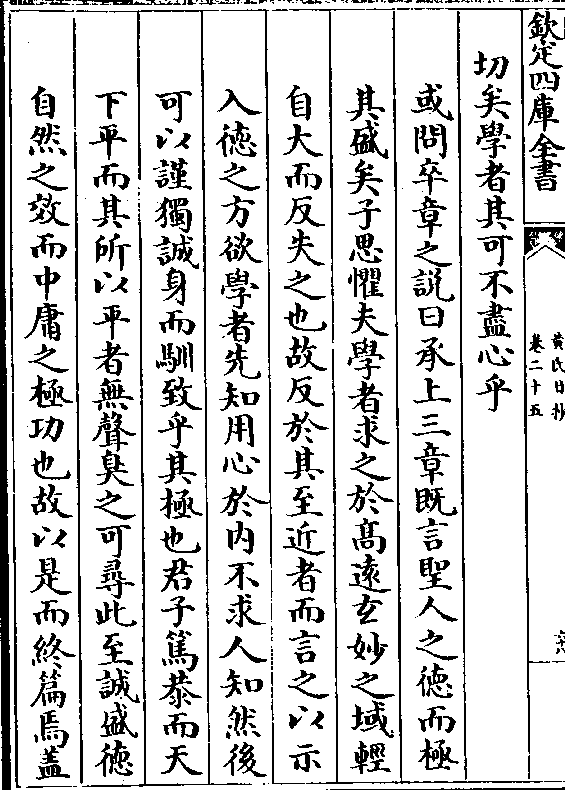 欽定四庫全書
黃氏日抄
卷二十五
切矣學者其可不盡心乎
或問卒章之說曰承上三章既言聖人之德而極
其盛矣子思懼夫學者求之於髙遠玄妙之域輕
自大而反失之也故反於其至近者而言之以示
入德之方欲學者先知用心於内不求人知然後
可以謹獨誠身而馴致乎其極也君子篤恭而天
下平而其所以平者無聲臭之可尋此至誠盛德
自然之效而中庸之極功也故以是而終篇焉盖